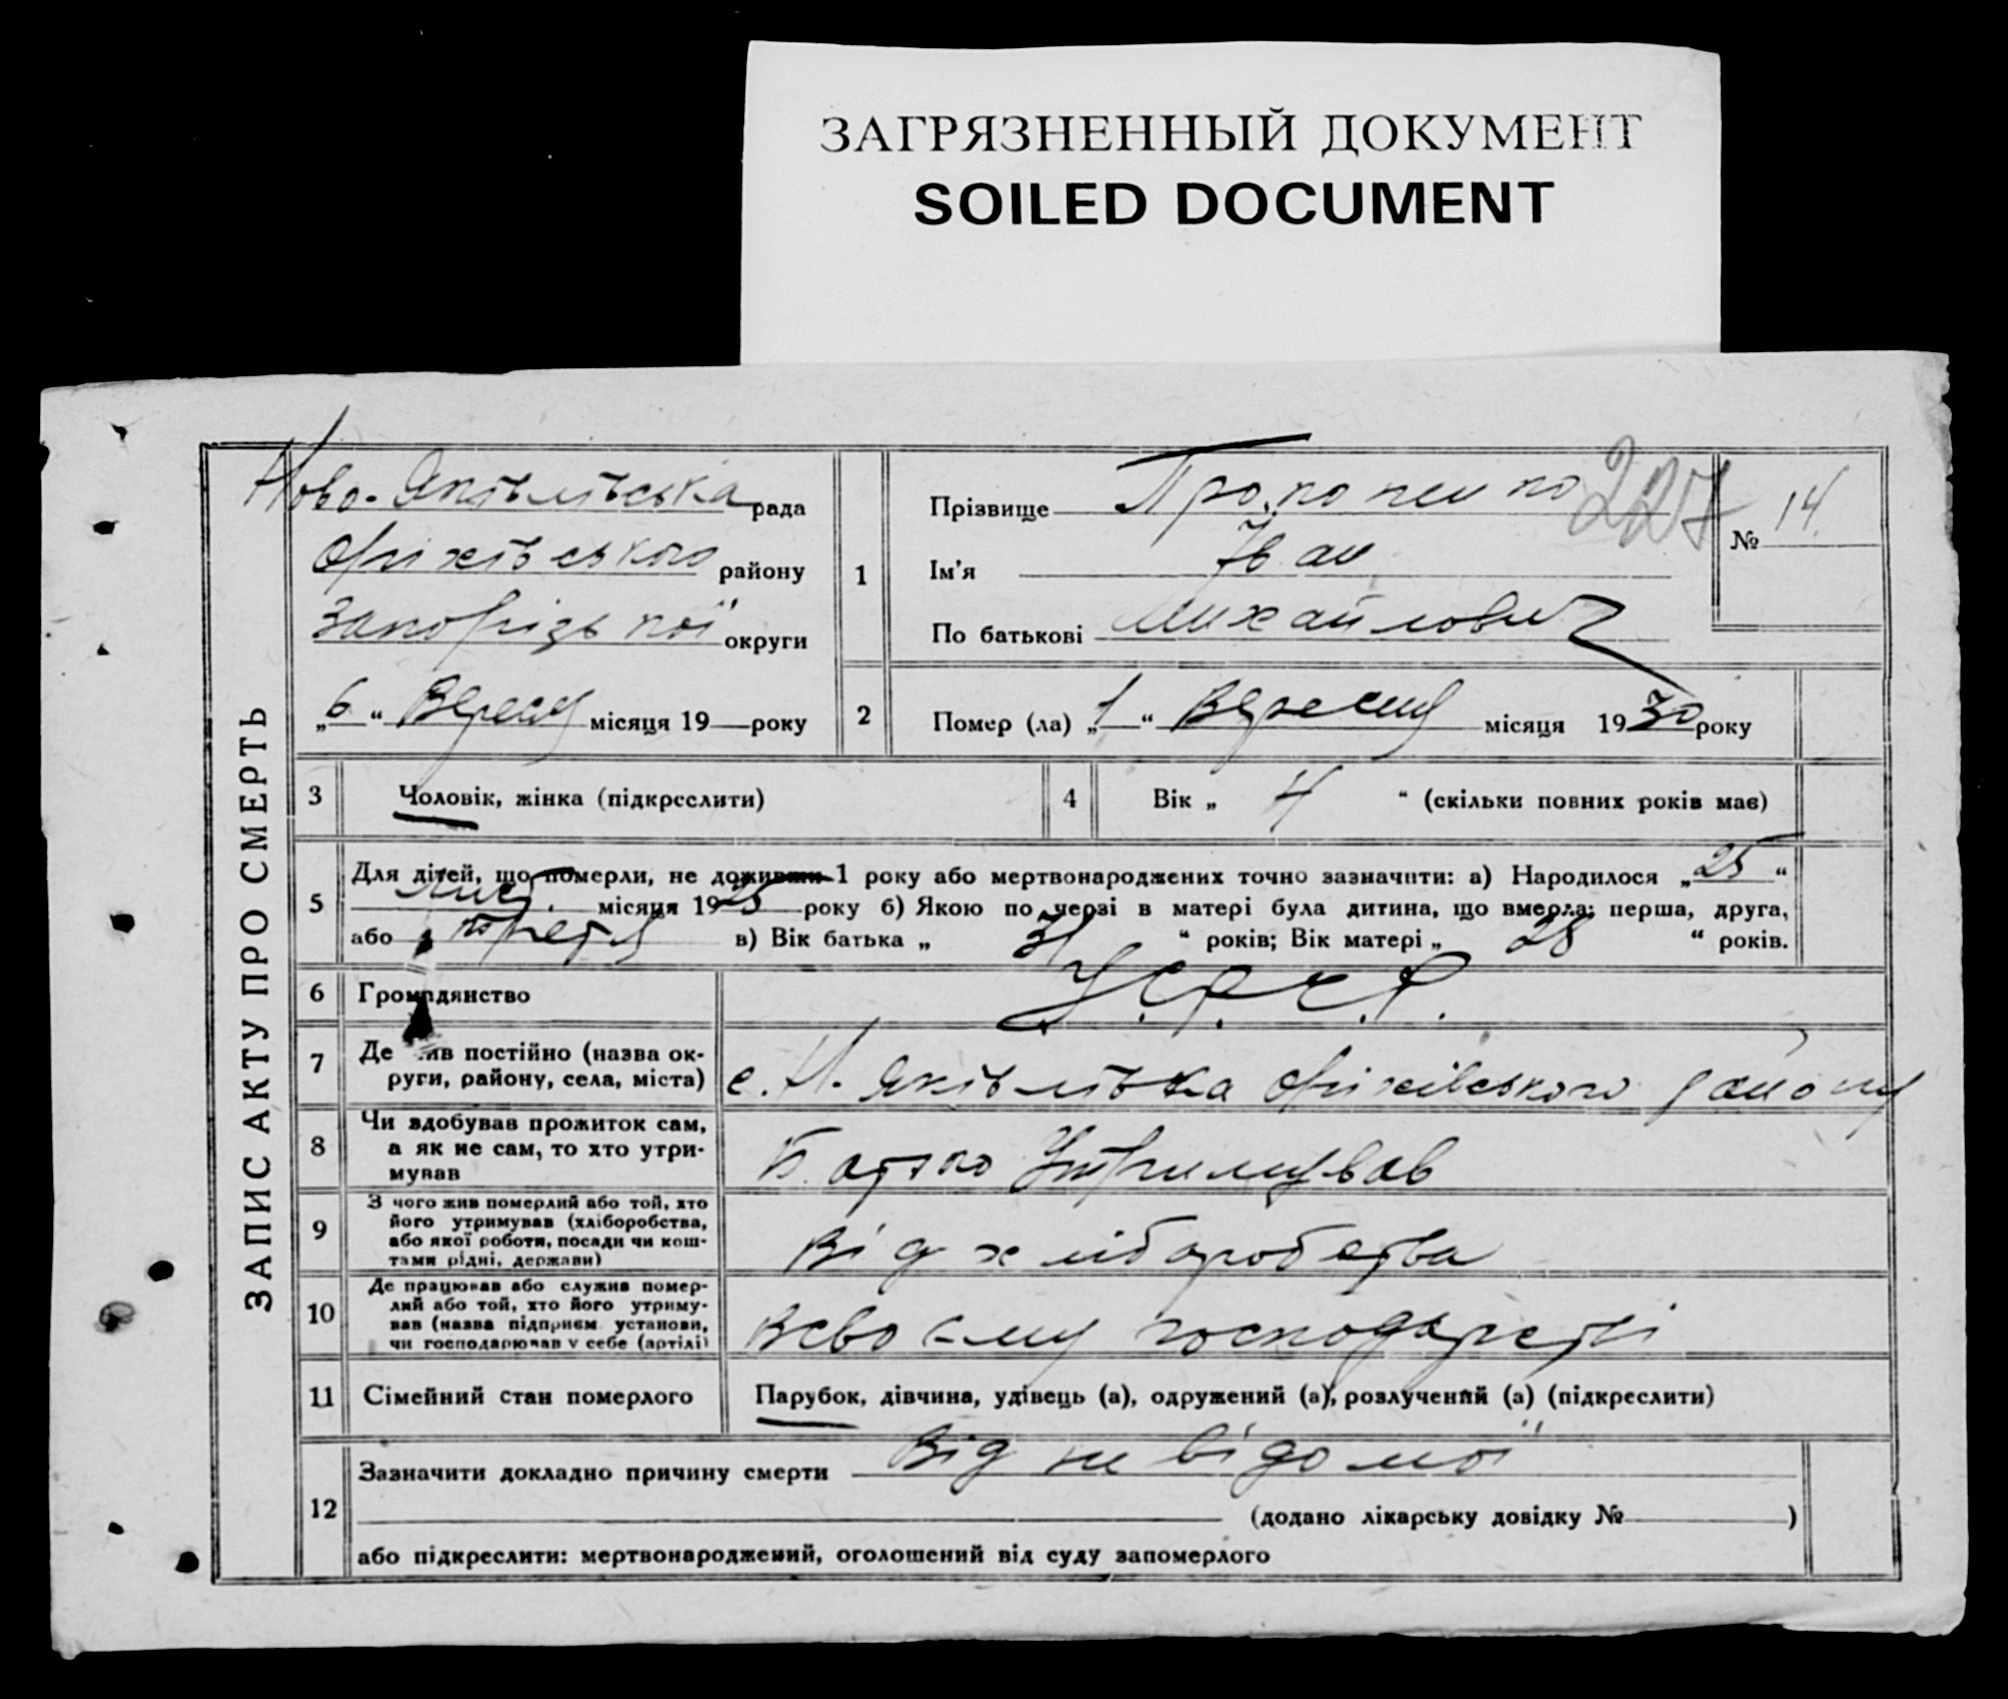 ЗАГРЯЗНЕННЫЙ ДОКУМЕНТ
SOILED DOCUMENT
ЗАПИС АКТУ ПРО СМЕРТЬ
Ново-Яківлівська рада
Оріхівського району
Запорізької округи
„6“ Вересня місяця 19 року
1
Прізвище Прокопенко
Ім'я Іван
По батькові Михайлович
227
№ 14
2
Помер (ла) „1“ Вересня місяця 1930 року
3 Чоловік, жінка (підкреслити)
4 Вік „ 4 “ (скільки повних років має)
5 Для дітей, що померли, не доживши 1 року або мертвонароджених точно зазначити: а) Народилося „25“
Лист. місяця 1925 року б) Якою по черзі в матері була дитина, що вмерла: перша, друга,
або третя в) Вік батька „ 31 “ років; Вік матері „ 28 “ років.
6 Громадянство У.С.Р.С.Р.
7 Де жив постійно (назва округи, району, села, міста) с. Н. Яківлівка Оріхівського району
8 Чи здобував прожиток сам, а як не сам, то хто утримував Батько Утримував
9 З чого жив померлий або той, хто його утримував (хліборобства, або якої роботи, посади чи коштами рідні, держави) Від хліборобства
10 Де працював або служив померлий або той, хто його утримував (назва підприєм. установи, чи господарював у себе (артілі) Всвойму господарстві
11 Сімейний стан померлого Парубок, дівчина, удівець (а), одружений (а), розлучений (а) (підкреслити)
12 Зазначити докладно причину смерти Від не відомої
(додано лікарську довідку № )
або підкреслити: мертвонароджений, оголошений від суду запомерлого